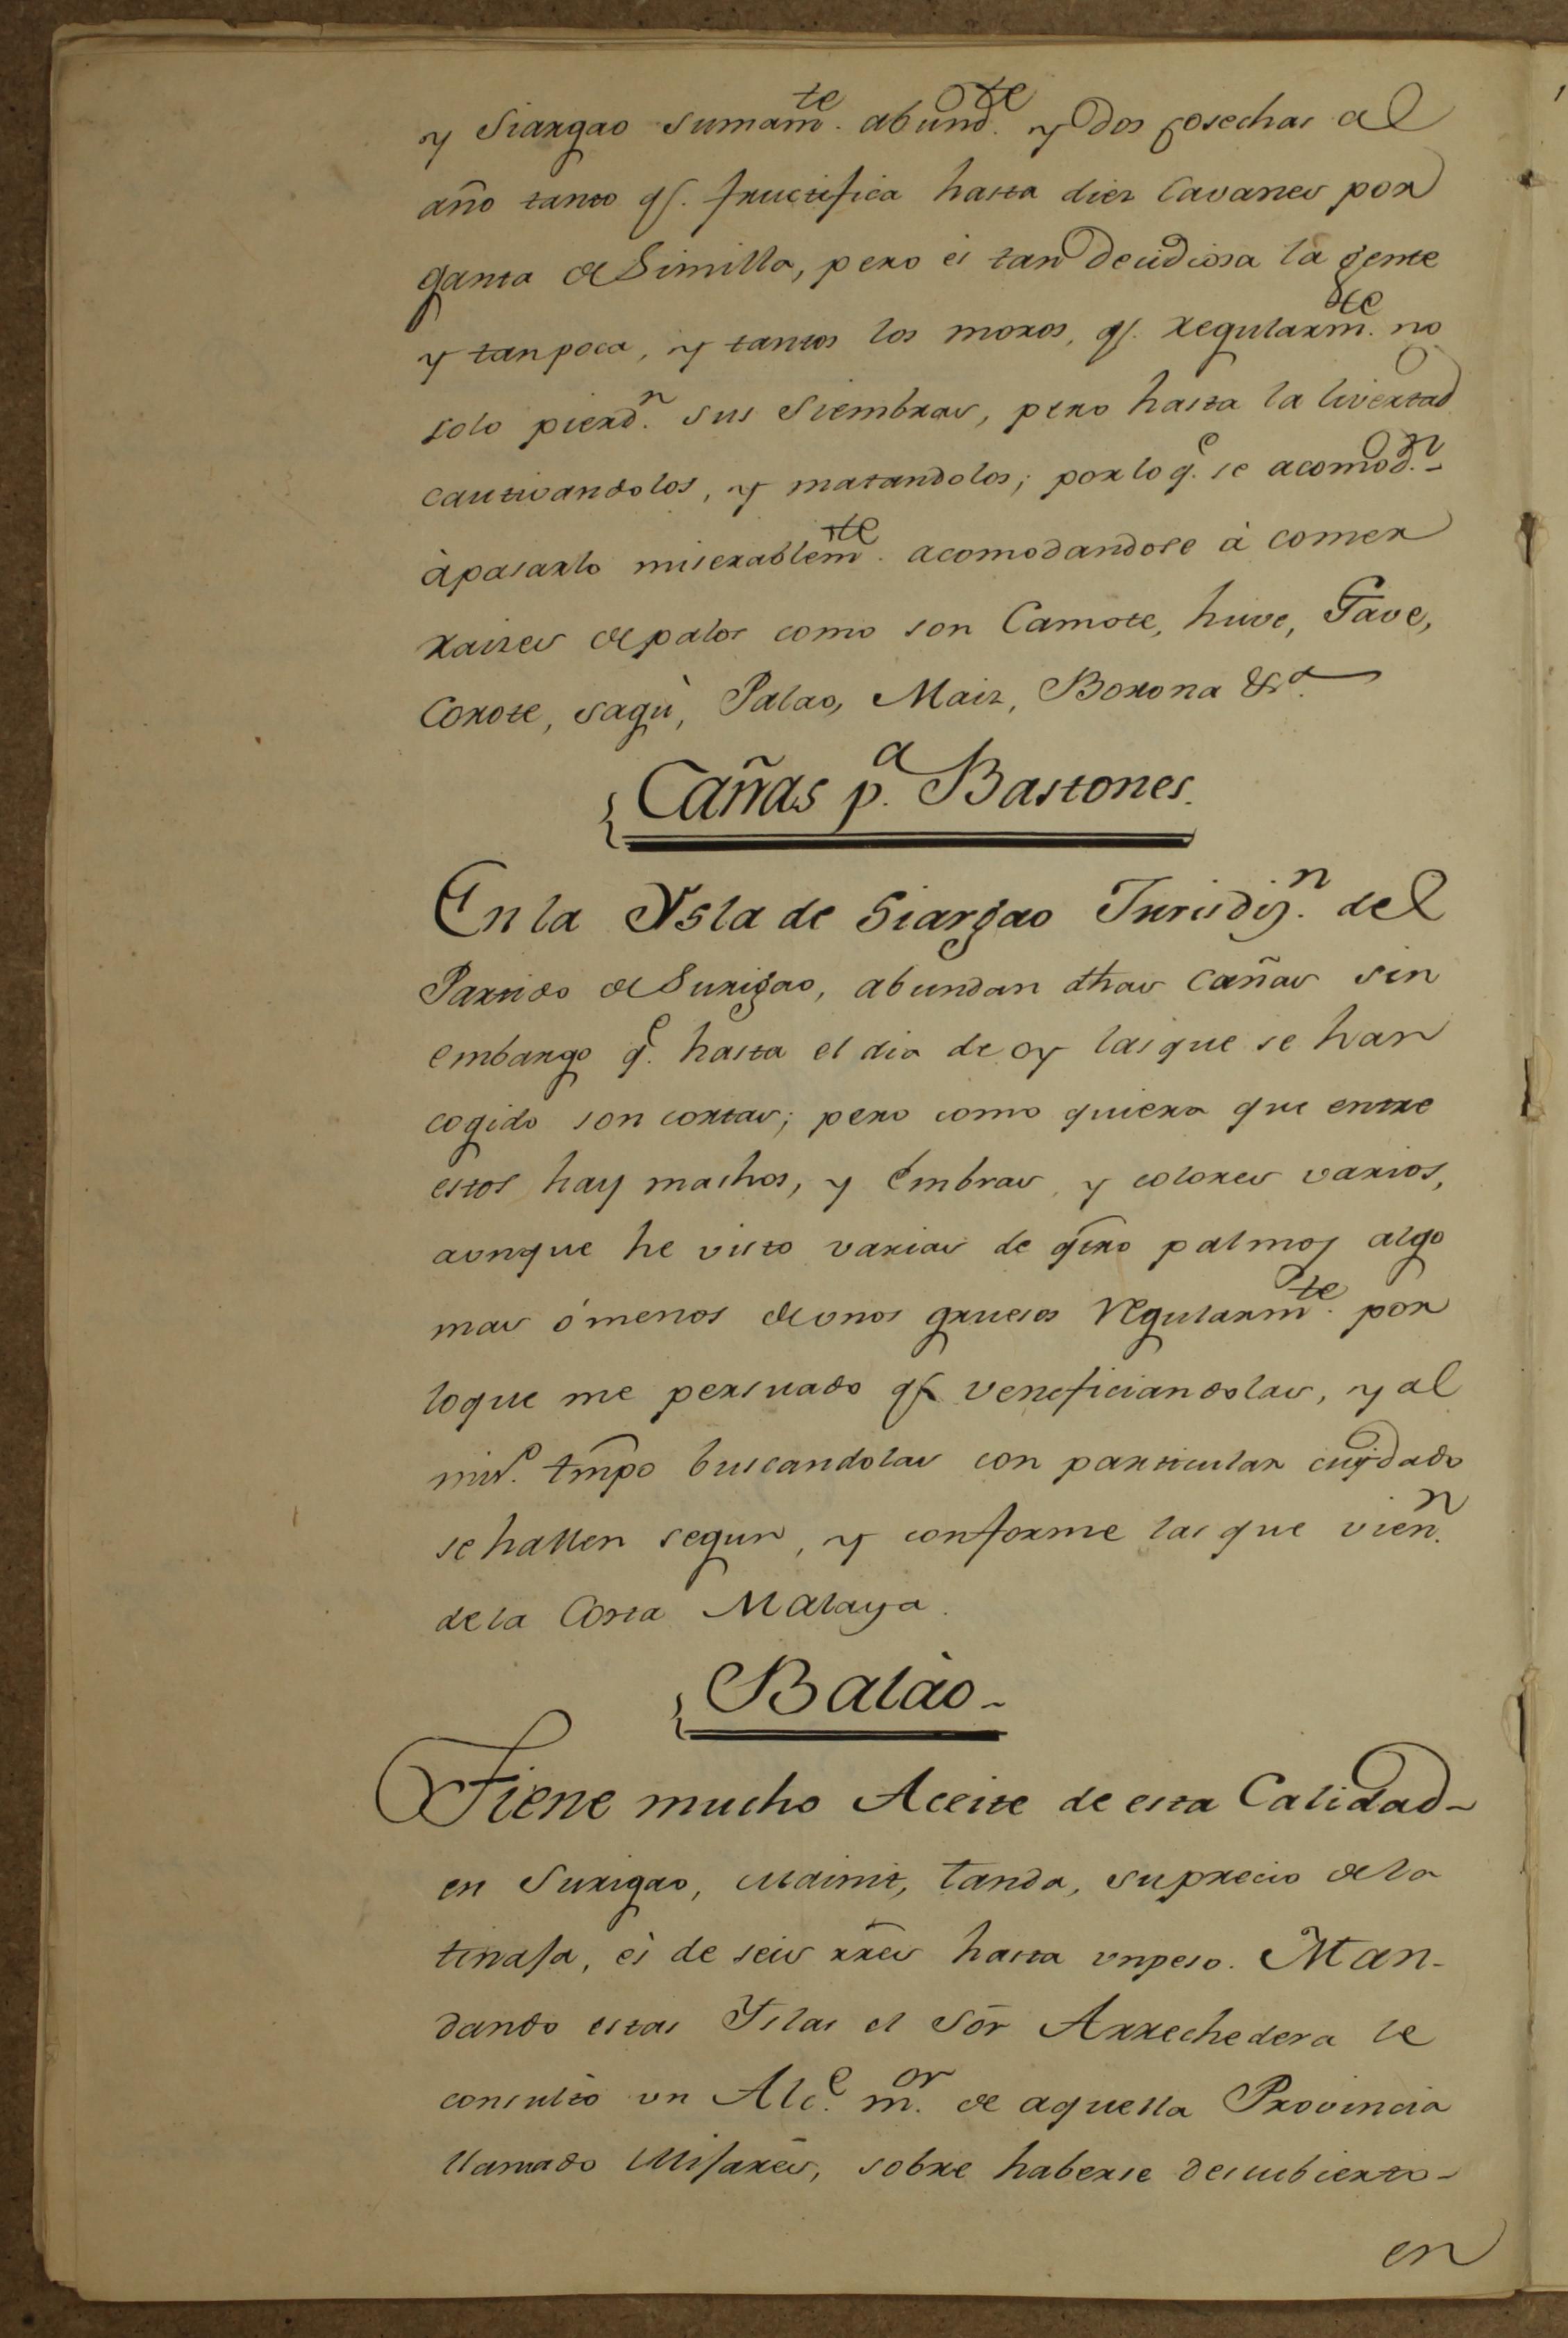 y Siargao sumam.te abund.te y dos cosechas al
año tanto q.e fructifica hasta diez Cavanes por
ganta de Similla, pero es tan decidiosa la gente
y tanpoca, y tantos los moros, q.e regularm.te no
solo pierd.n sus Siembras, pero hasta la livertad
cautivandolos, y matandolos; porlo q.e se acomod.n
àpasarlo miserablem.te acomodandose à comer
raizes depalos como son Camote, huve, Gave,
Corote, sagù, Palao, Maiz, Borona &.a
Cañas p.a Bastones.
Enla Ysla de Siargao Jurisdiz.n del
Partido de Surigao, abundan dhas Cañas sin
embargo q.e hasta el dia de oy lasque se han
cogido son cortas; pero como quiera que entre
estos hay machos, y embras, y colores varios,
aunque he visto varias de qtro palmos algo
mas ómenos deunos gruesos regularm.te por
loque me persuado q.e veneficiandolas, y al
mis.o tmpo buscandolas con particular cuydado
sehallen segun, y conforme las que vien.n
dela Costa Malaya.
Balào-
Tiene mucho Aceite de esta Calidad-
en Surigao, Mainit, Tanda, suprecio dela
tinaja, es de seis rres hasta unpeso. Man-
dando estas Yslas el Sor Arrechedera le
consultò un Alc.e m.or de aquella Provincia
llamado Mijares, sobre haberse descubierto-
en